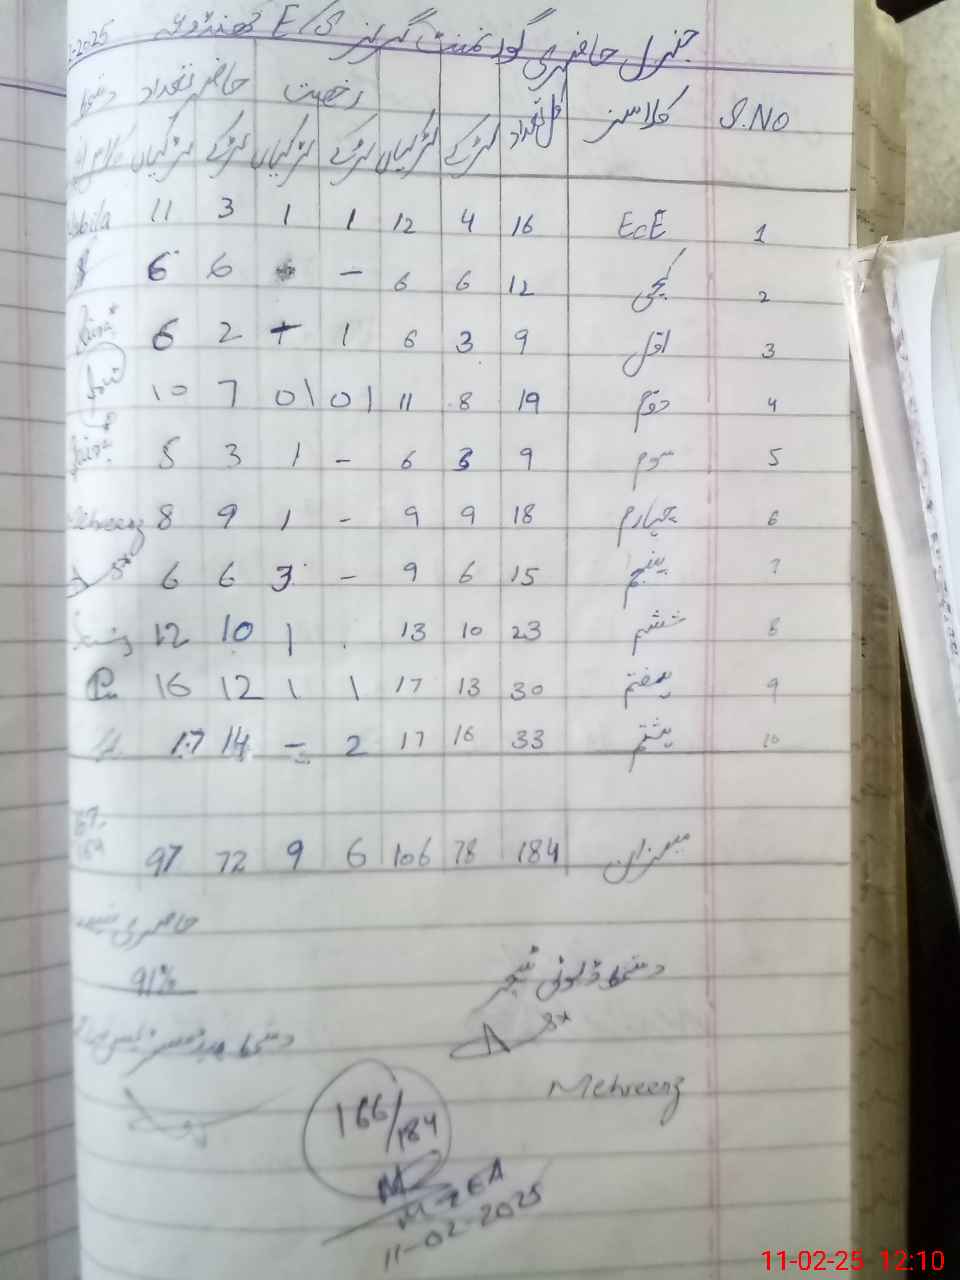 جنرل حاضری گورنمنٹ گرلز E/S
2-2025
S.NO کلاسز کل تعداد لڑکے لڑکیاں رخصت لڑکے لڑکیاں حاضر تعداد لڑکے لڑکیاں
1 ECE 16 4 12 1 1 3 11
2 کچی 12 6 6 – 6 6
3 اول 9 3 6 1 2 6
4 دوم 19 8 11 01 01 7 10
5 سوم 9 3 6 - 1 3 5
6 چہارم 18 9 9 - 1 9 8 Mehreenz
7 پنجم 15 6 9 - 3 6 6
8 ششم 23 10 13 . 1 10 12
9 ہفتم 30 13 17 1 1 12 16
10 ہشتم 33 16 17 2 – 14 17
میزان 184 78 106 6 9 72 97
حاضری
91%
دستخط ڈیوٹی ٹیچر
دستخط
Mehreenz
166/184
MZ
MZEA
11-02-2025
11-02-25 12:10